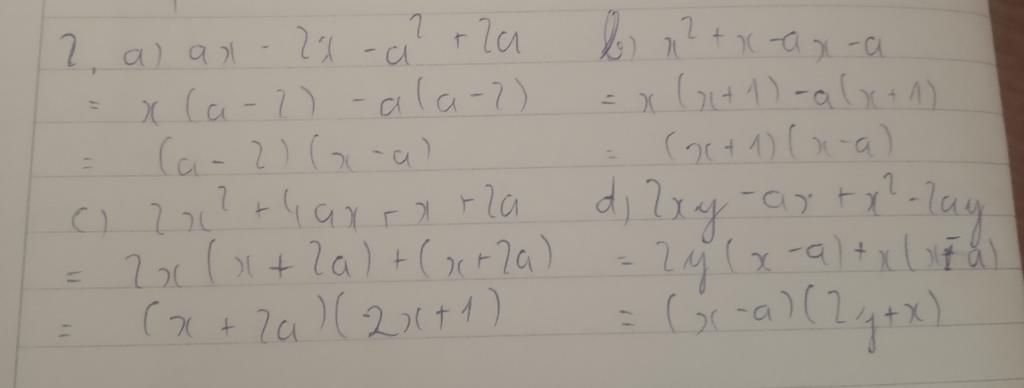 2. a) ax - 2x - a² + 2a
= x(a - 2) - a(a - 2)
= (a - 2)(x - a)
b) x² + x - ax - a
= x(x + 1) - a(x + 1)
= (x + 1)(x - a)
c) 2x² + 4ax + x + 2a
= 2x(x + 2a) + (x + 2a)
= (x + 2a)(2x + 1)
d) 2xy - ax + x² - 2ay
= 2y(x - a) + x(x - a)
= (x - a)(2y + x)